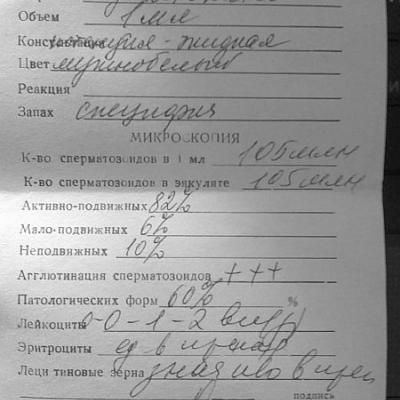 Объем 1 мл
Консистенция - жидкая
Цвет мутнобелый
Реакция
Запах специфич
МИКРОСКОПИЯ
К-во сперматозоидов в 1 мл 105 млн
К-во сперматозоидов в эякуляте 105 млн
Активно-подвижных 82%
Мало-подвижных 6%
Неподвижных 10%
Агглютинация сперматозоидов +++
Патологических форм 60% %
Лейкоциты 0-0-1-2 в
Эритроциты ед. в
Лецитиновые зерна в
подпись